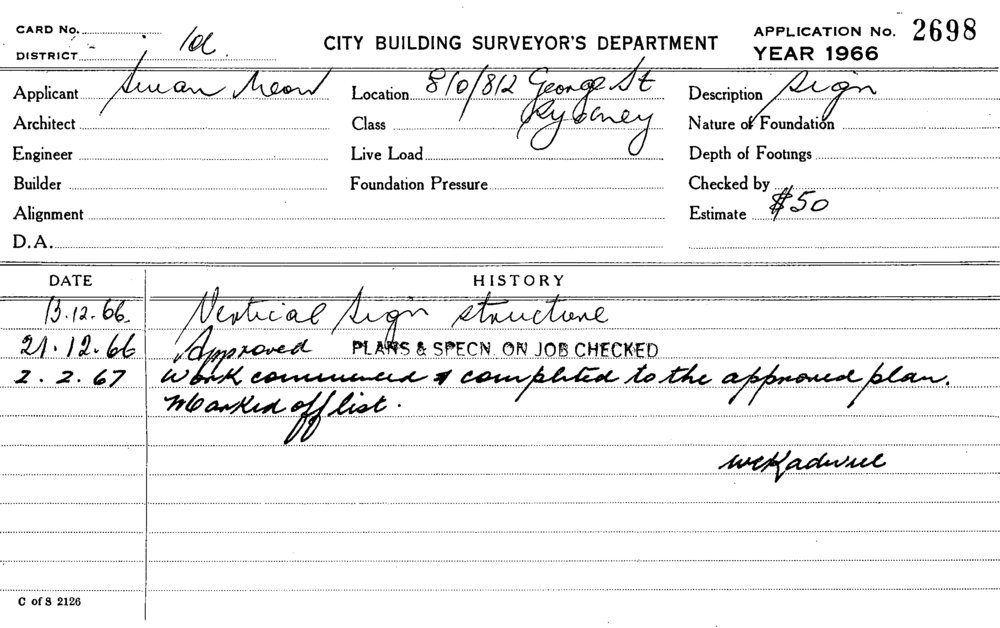 CARD No.
DISTRICT 1d.
CITY BUILDING SURVEYOR'S DEPARTMENT
APPLICATION No. 2698
YEAR 1966
Applicant
Location 810/812 George St
Description Sign
Architect
Class Sydney
Nature of Foundation
Engineer
Live Load
Depth of Footings
Builder
Foundation Pressure
Checked by
Alignment
Estimate $50
D.A.
DATE HISTORY
13.12.66 Vertical Sign structure
21.12.66 Approved PLANS & SPECN. ON JOB CHECKED
2.2.67 Work commenced & completed to the approved plan.
Marked off list.
C of S 2126